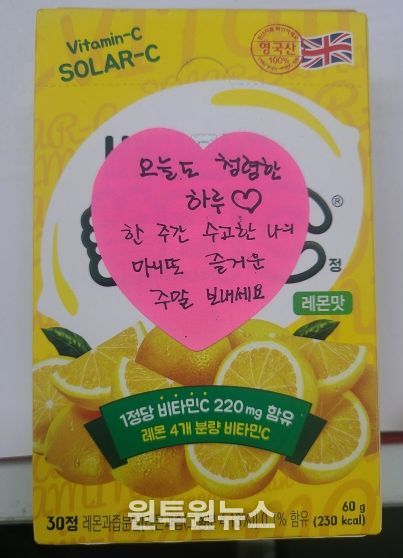 Vitamin-C
SOLAR-C
영국산
100%
오늘도 청렴한
하루♡
한 주간 수고한 나의
마니또 즐거운
주말 보내세요
®
정
레몬맛
1정당 비타민C 220mg 함유
레몬 4개 분량 비타민C
원투원뉴스
30정 레몬과즙분말
% 함유
60 g
(230 kcal)